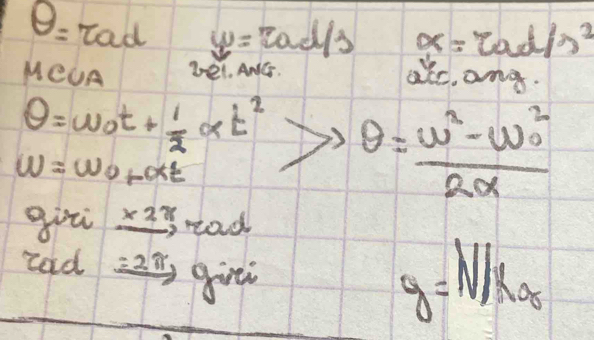 θ = rad   ω = rad/s   α = rad/s²
MCUA   vel. ANG.   acc. ang.
θ = ω₀t + 1/2 αt²
ω = ω₀ + αt   > θ = (ω² - ω₀²)/2α
giri ×2π→ rad
rad :2π→ giri   g = N/kg